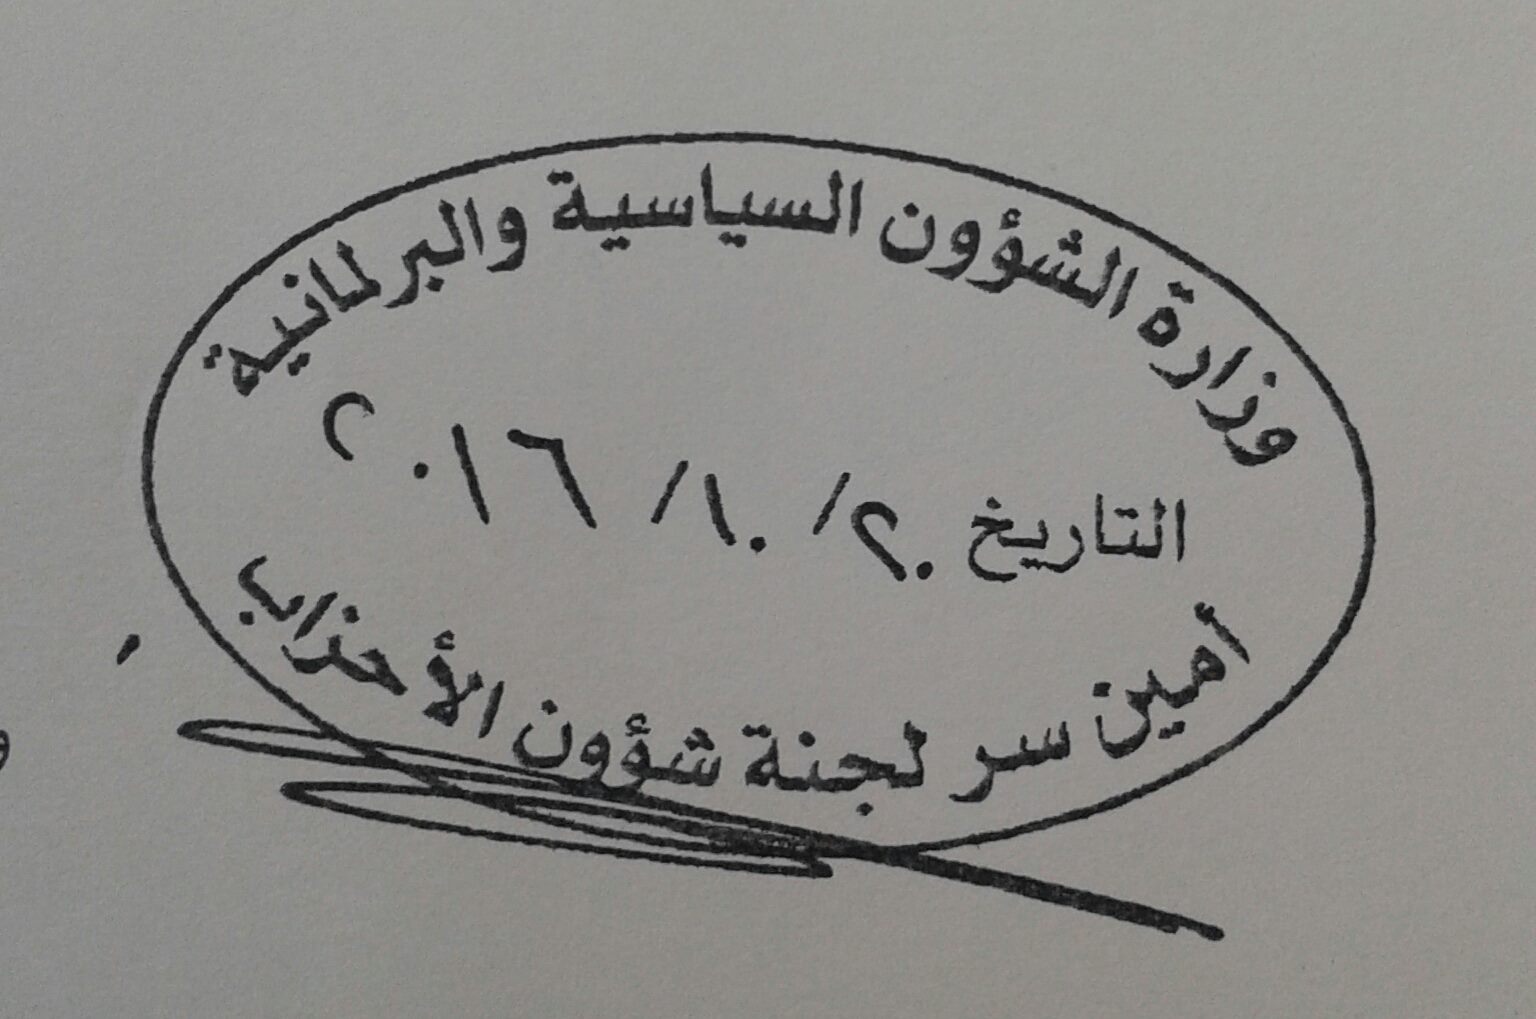 وزارة الشؤون السياسية والبرلمانية
التاريخ ٢٠/ ١٠/ ٢٠١٦
أمين سر لجنة شؤون الأحزاب